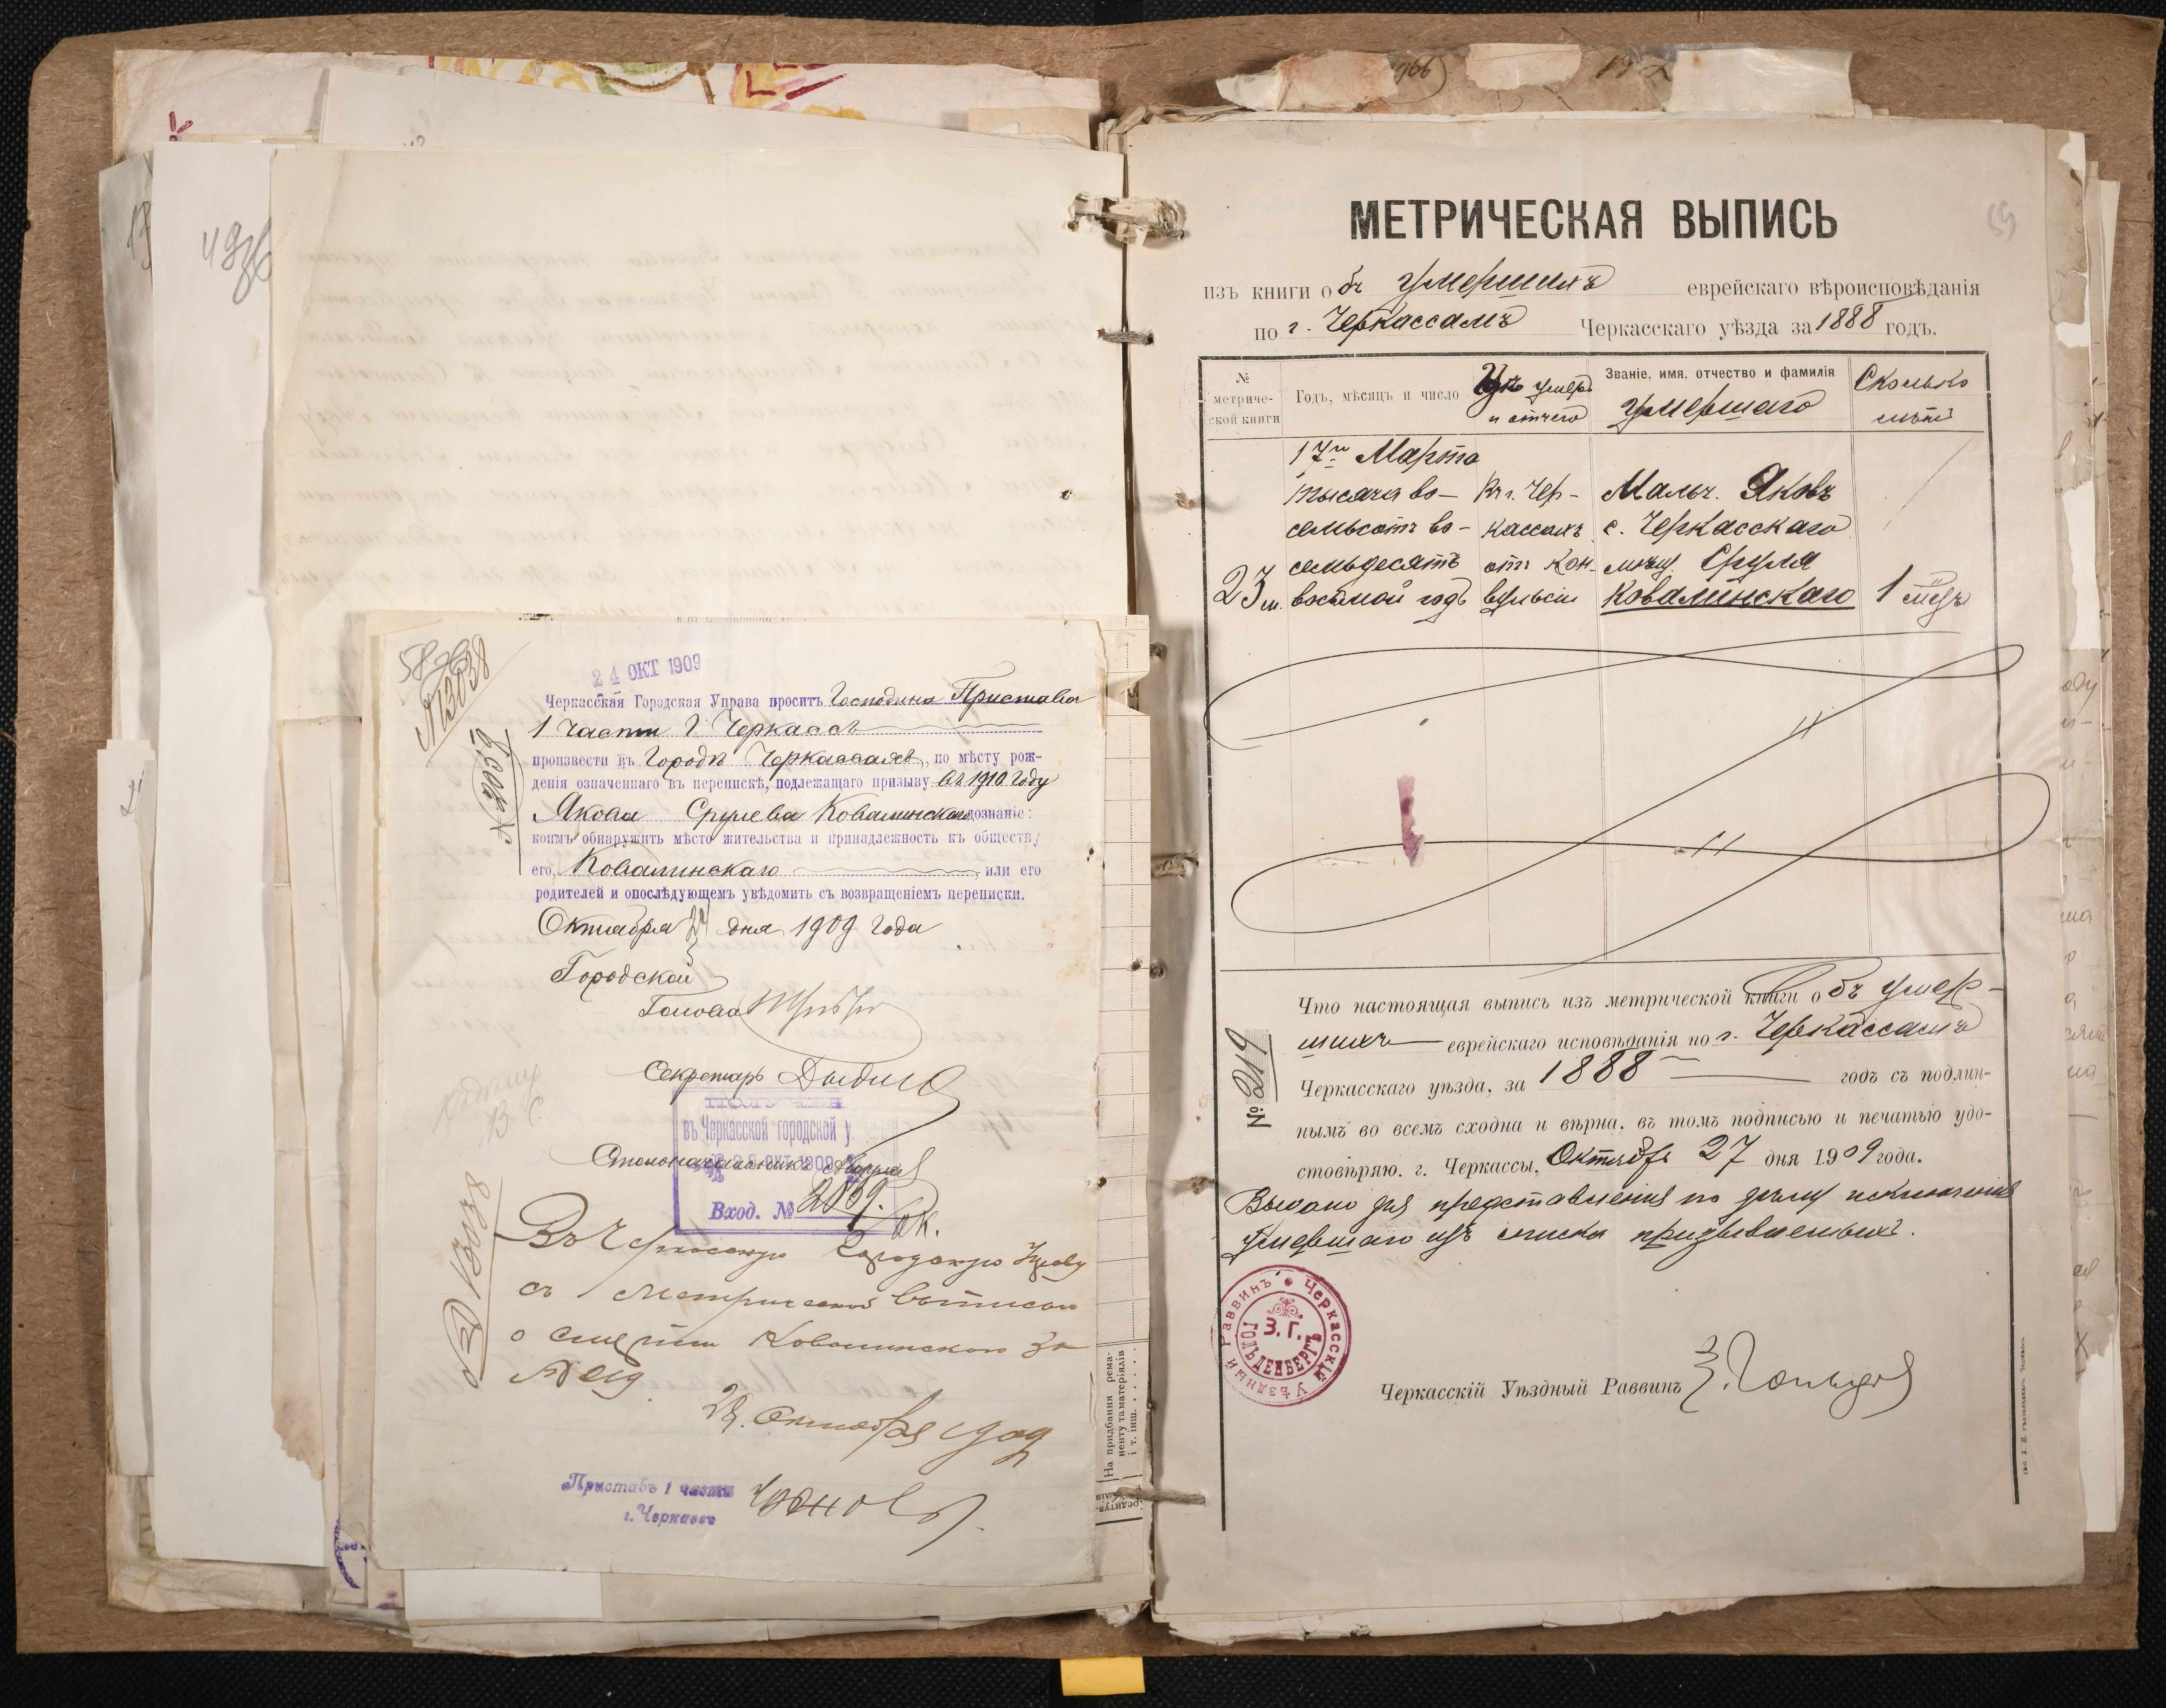 4936
58
№13038
24 ОКТ 1909
Черкасская Городская Управа проситъ Господина Пристава
1 части г. Черкассъ
произвести въ Городѣ Черкассахъ, по мѣсту рож-
денія означеннаго въ перепискѣ, подлежащаго призыву въ 1910 году
Якова Срулева Ковалинскаго дознаніе:
коимъ обнаружить мѣсто жительства и принадлежность къ обществу
его, Ковалинскаго, или его
родителей и опослѣдующемъ увѣдомить съ возвращеніемъ переписки.
Октября 24 дня 1909 года
Городской
Голова
Секретарь
въ Черкасской городской у
Столоначальникъ
Вход. № 2859.
№ 13038
Въ Черкасскую Городскую Управу
съ метрической выписью
о смерти Ковалинскаго за
№ 219
28. Октября 1909
Приставъ 1 части
г. Черкассъ
На придбання рема-
ненту та матеріялів
і т. інш.
59
МЕТРИЧЕСКАЯ ВЫПИСЬ
изъ книги объ умершихъ еврейскаго вѣроисповѣданія
по г. Черкассамъ Черкасскаго уѣзда за 1888 годъ.
№ метриче-ской книги
Годъ, мѣсяцъ и число
Гдѣ умеръ и отчего
Званіе, имя, отчество и фамилія умершаго
Сколько лѣтъ
17го Марта
тысяча во- въ г. Чер- Мальч. Яковъ
семьсотъ во- кассахъ с. Черкасскаго
семьдесятъ отъ кон- мѣщ. Сруля
23 м. восьмой годъ вульсіи Ковалинскаго 1 мцъ
Что настоящая выпись изъ метрической книги объ умер-
шихъ еврейскаго исповѣданія по г. Черкассамъ
Черкасскаго уѣзда, за 1888 годъ съ подлин-
нымъ во всемъ сходна и вѣрна, въ томъ подписью и печатью удо-
стовѣряю. г. Черкассы, Октябрь 27 дня 1909 года.
№ 219
Выдано для представленія по дѣлу исключенія
умершаго изъ списка призываемыхъ.
Черкасскій Уѣздный Раввинъ
З. Г. ГОЛЬДЕНБЕРГЪ
Черкасскій Уѣздный Раввинъ